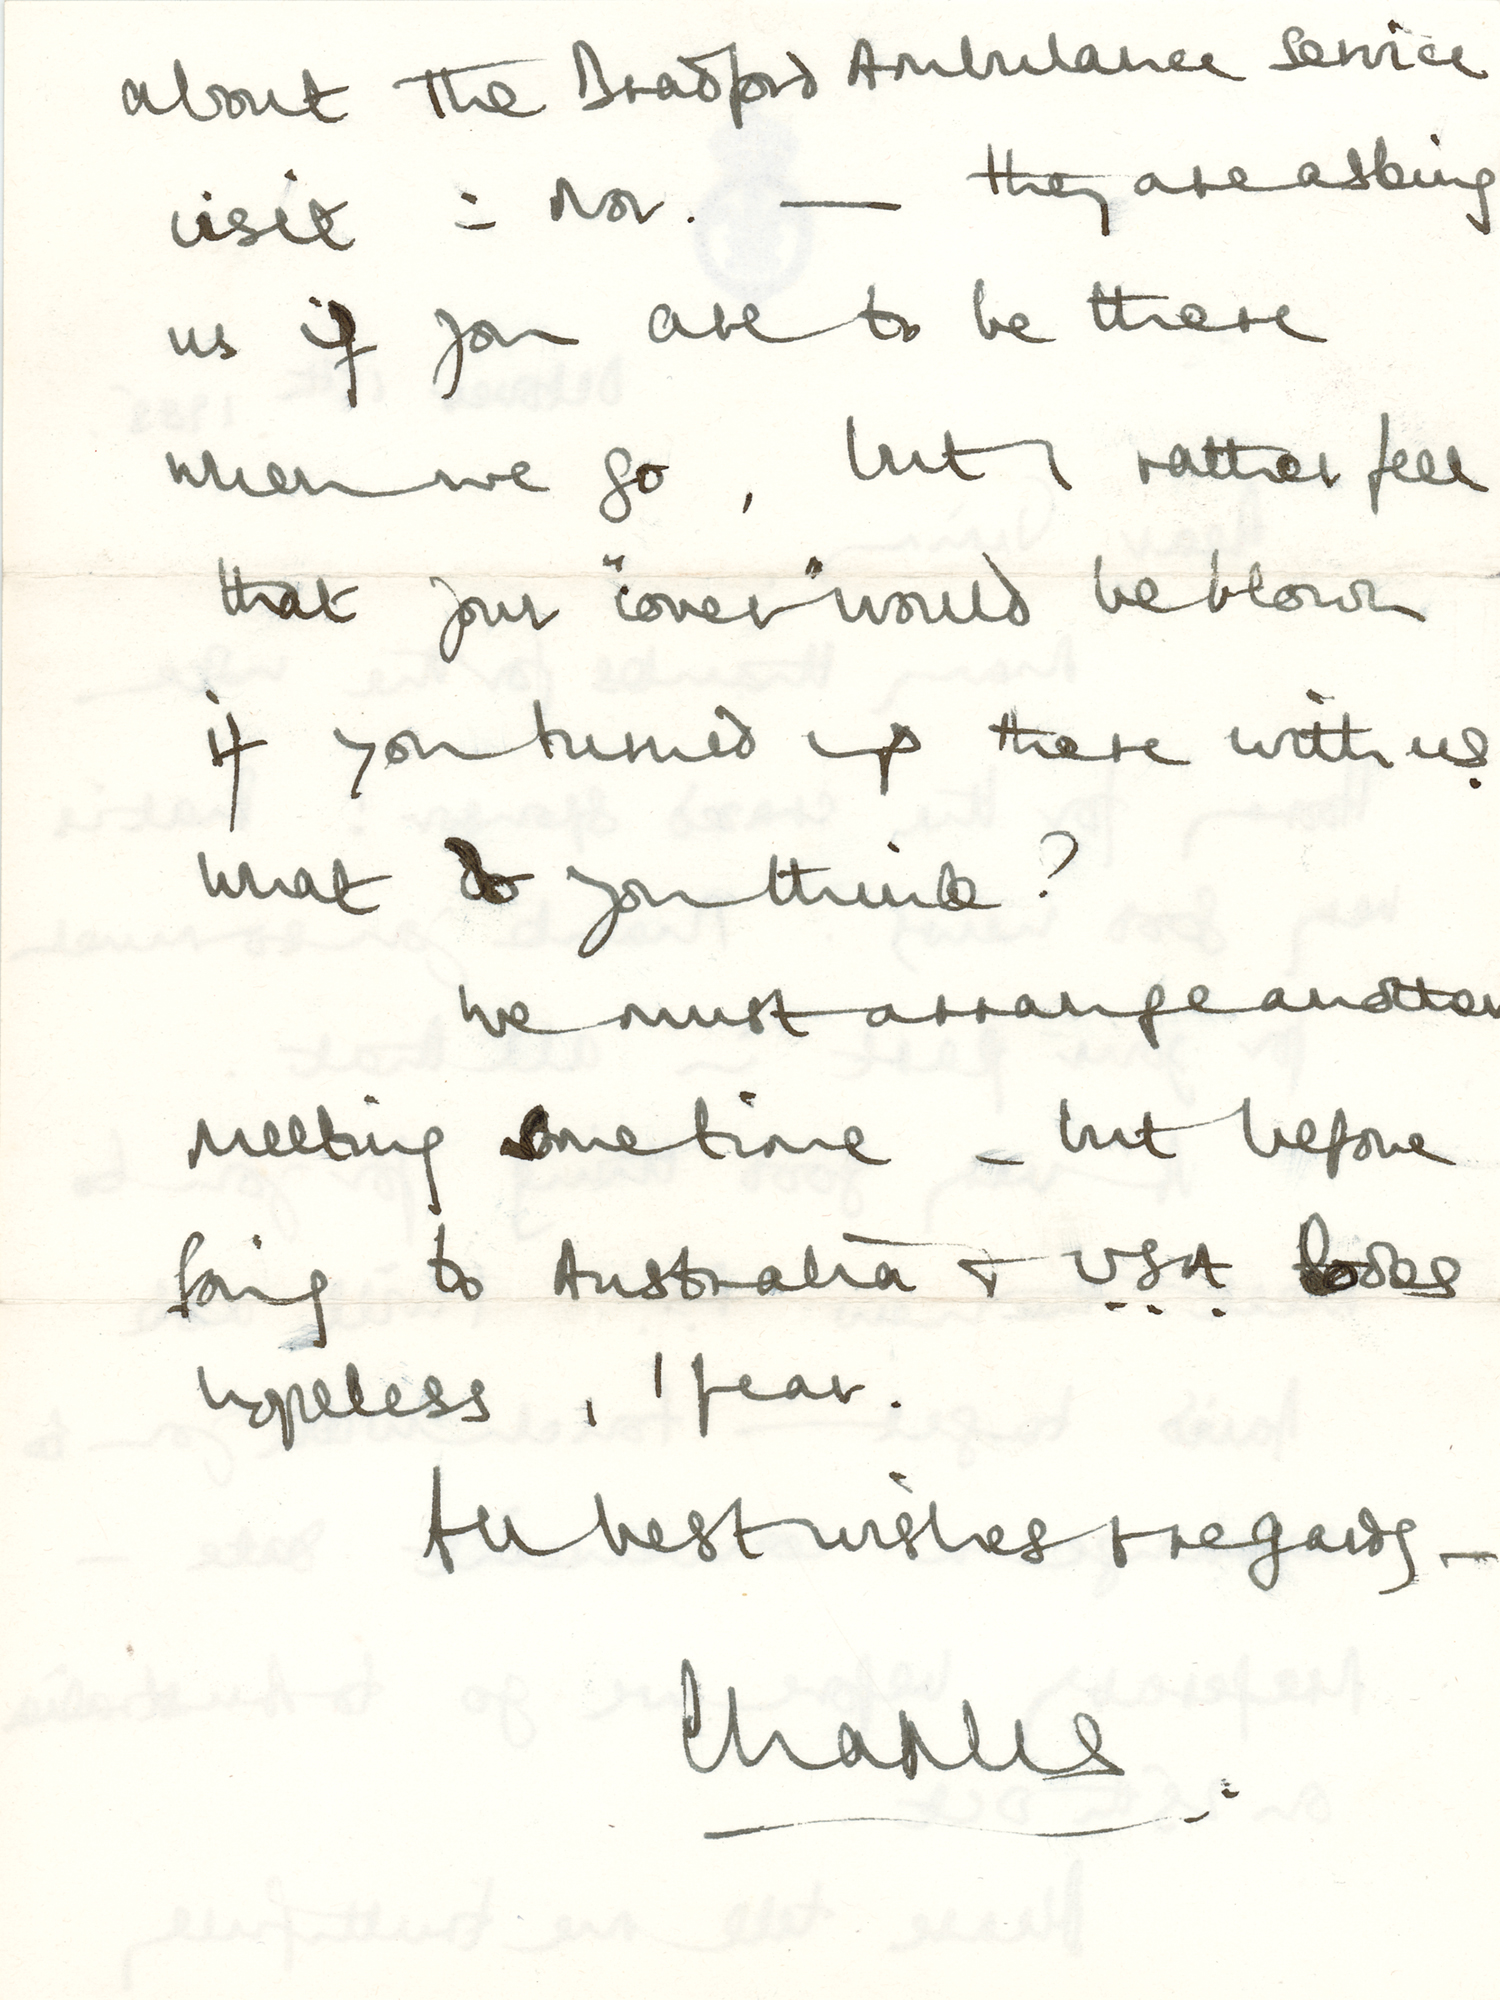 about the Bradford Ambulance Service
visit - Nov. — they are asking
us if you are to be there
when we go, but I rather feel
that your "cover" would be blown
if you turned up there with us.
What do you think?
We must arrange another
meeting sometime - but before
going to Australia + U.S.A. looks
hopeless, I fear.
All best wishes + regards —
Charles.